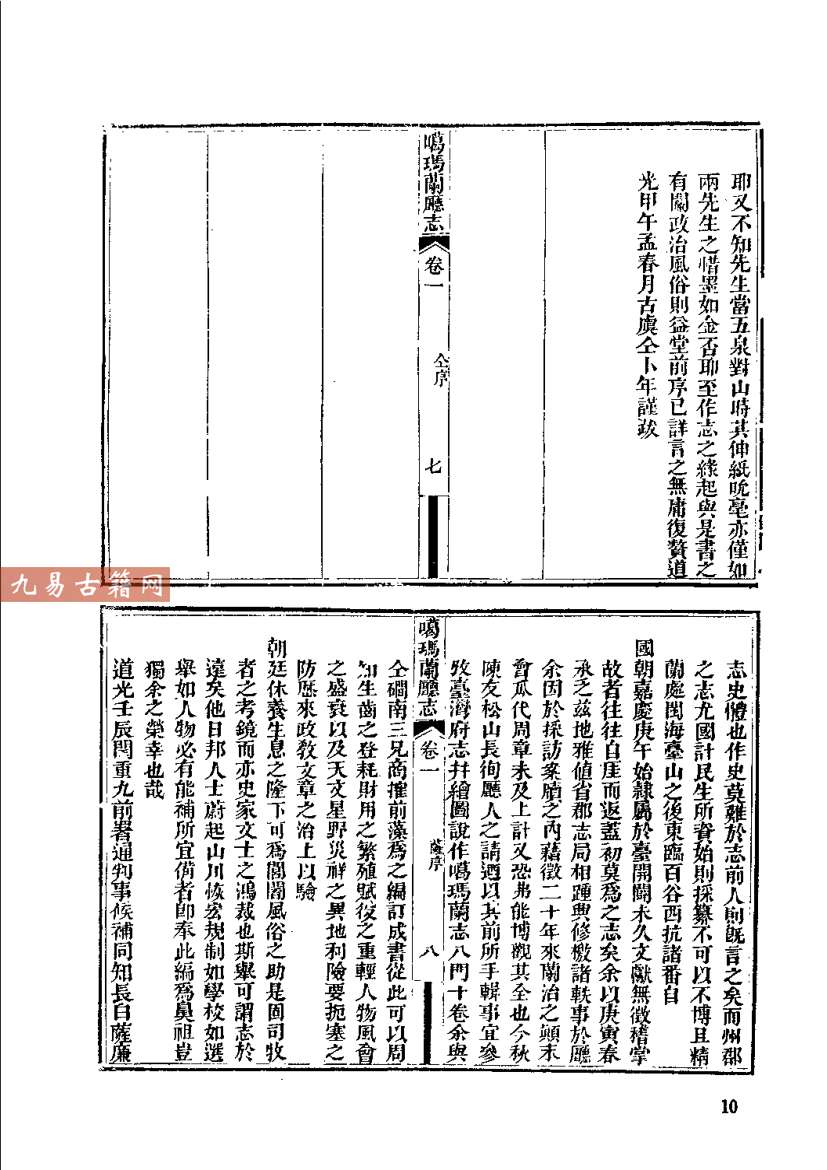 耶又不知先生當五泉對山時其伸紙吮毫亦僅如
兩先生之惜墨如金否耶至作志之緣起與是書之
有關政治風俗則益堂前序已詳言之無庸復贅道
光甲午孟春月古虞仝卜年謹跋
噶瑪蘭廳志
卷一
仝序
七
九易古籍网
志史體也作史莫難於志前人則既言之矣而州郡
之志尤國計民生所資始則採纂不可以不博且精
蘭處閩海臺山之後東臨百谷西抗諸番自
國朝嘉慶庚午始隸屬於臺開闢未久文獻無徵稽掌
故者往往自崖而返蓋初莫為之志矣余以庚寅春
承乏茲地雅値省郡志局相踵與修檄諸軼事於廳
余因於採訪案牘之內藉徵二十年來蘭治之顛末
會瓜代周章未及上計又恐弗能博觀其全也今秋
陳友松山長徇廳人之請迺以其前所手輯事宜參
攷臺灣府志幷繪圖說作噶瑪蘭志八門十卷余與
噶瑪蘭廳志
卷一
薩序
八
仝礀南三兄商搉前藻為之編訂成書從此可以周
知生齒之登耗財用之繁殖賦役之重輕人物風會
之盛衰以及天文星野災祥之異地利險要扼塞之
防歷來政敎文章之治上以驗
朝廷休養生息之隆下可為閭閻風俗之助是固司牧
者之考鏡而亦史家文士之鴻裁也斯舉可謂志於
遠矣他日邦人士蔚起山川恢宏規制如學校如選
舉如人物必有能補所宜備者卽奉此編為臬祖豈
獨余之榮幸也哉
道光壬辰閏重九前署通判事候補同知長白薩廉
10